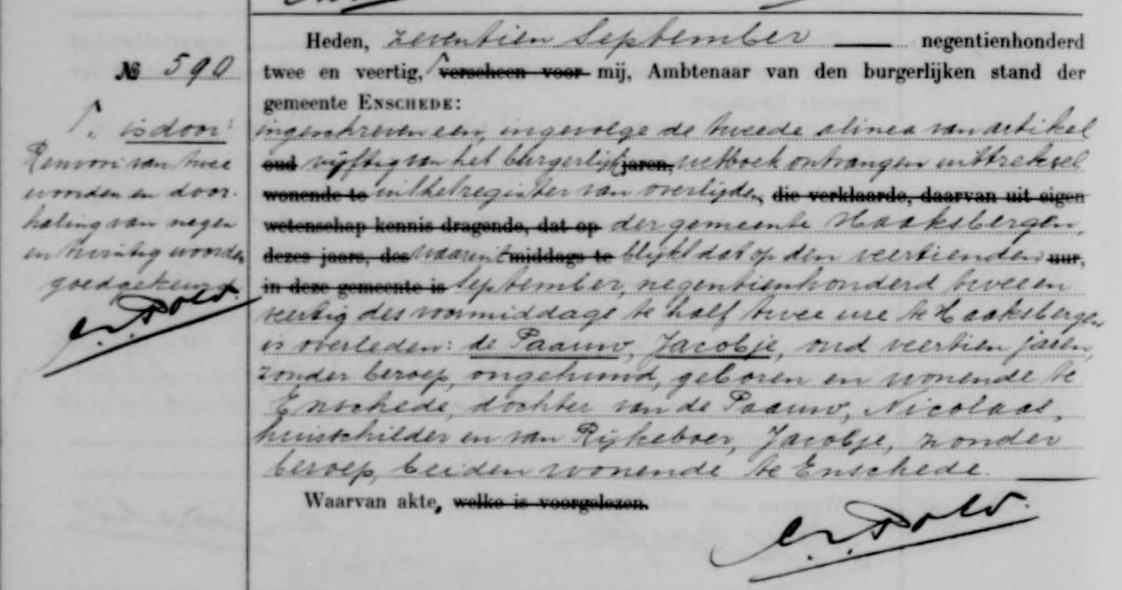 Heden, zeventien September negentienhonderd
№ 590
twee en veertig, ⌈ verscheen voor mij, Ambtenaar van den burgerlijken stand der
gemeente ENSCHEDE:
⌈. is door:
Renvooi van twee
woorden en door-
haling van negen
en twintig woorden
goedgekeurd.
ingeschreven een, ingevolge de tweede alinea van artikel
oud vijftig van het burgerlijk jaren, wetboek ontvangen uittreksel
wonende te uit het register van overlijden, die verklaarde, daarvan uit eigen
wetenschap kennis dragende, dat op der gemeente Haaksbergen,
dezes jaars, des waaruit middags te blijkt dat op den veertienden uur,
in deze gemeente is September, negentienhonderd twee en
veertig des voormiddags te half twee ure te Haaksbergen
is overleden: de Paauw, Jacobje, oud veertien jaren,
zonder beroep, ongehuwd, geboren en wonende te
Enschede, dochter van de Paauw, Nicolaas,
huisschilder en van Rijkeboer, Jacobje, zonder
beroep, beiden wonende te Enschede.
Waarvan akte, welke is voorgelezen.